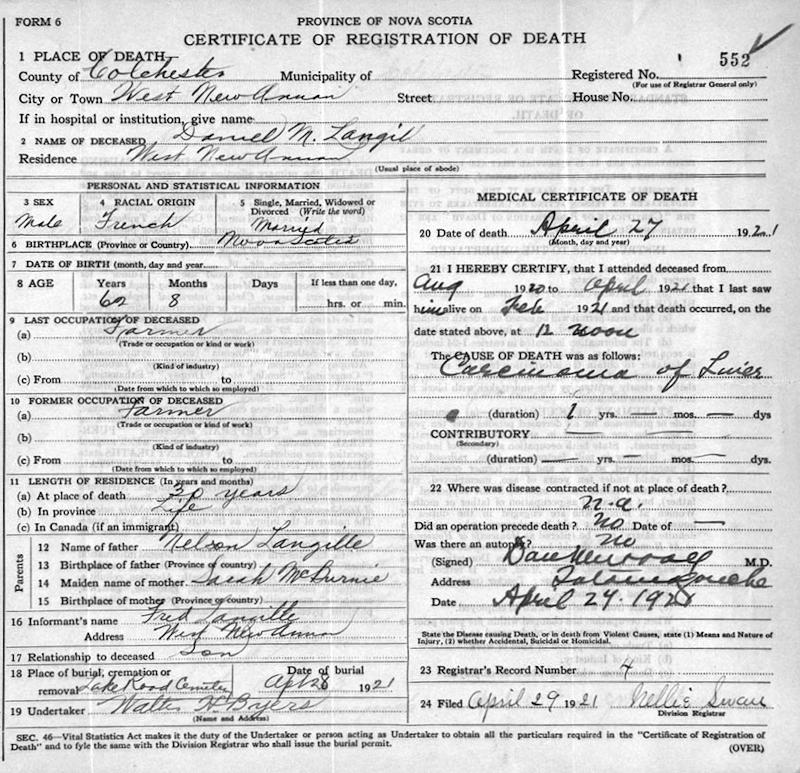 FORM 6
PROVINCE OF NOVA SCOTIA
CERTIFICATE OF REGISTRATION OF DEATH
552
1 PLACE OF DEATH
County of Colchester Municipality of Registered No.
(For use of Registrar General only)
City or Town West New Annan Street House No.
If in hospital or institution, give name
2 NAME OF DECEASED Daniel N. Langil
Residence West New Annan
(Usual place of abode)
PERSONAL AND STATISTICAL INFORMATION
3 SEX 4 RACIAL ORIGIN 5 Single, Married, Widowed or Divorced (Write the word)
Male French Married
6 BIRTHPLACE (Province or Country) Nova Scotia
7 DATE OF BIRTH (month, day and year)
8 AGE Years Months Days If less than one day,
62 8 hrs. or min.
9 LAST OCCUPATION OF DECEASED
(a) Farmer
(Trade or occupation or kind of work)
(b)
(Kind of industry)
(c) From to
(Date from which to which so employed)
10 FORMER OCCUPATION OF DECEASED
(a) Farmer
(Trade or occupation or kind of work)
(b)
(Kind of industry)
(c) From to
(Date from which to which so employed)
11 LENGTH OF RESIDENCE (In years and months)
(a) At place of death 30 years
(b) In province Life
(c) In Canada (if an immigrant)
Parents
12 Name of father Nelson Langille
13 Birthplace of father (Province or country)
14 Maiden name of mother Sarah McBurnie
15 Birthplace of mother (Province or country)
16 Informant's name Fred Langille
Address West New Annan
17 Relationship to deceased Son
18 Place of burial, cremation or removal Lake Road Cemetery Date of burial Apl 28 1921
19 Undertaker Walter H Byers
(Name and Address)
MEDICAL CERTIFICATE OF DEATH
20 Date of death April 27 1921
(Month, day and year)
21 I HEREBY CERTIFY, that I attended deceased from
Aug 1920 to April 1921 that I last saw
him alive on Feb 1921 and that death occurred, on the
date stated above, at 12 noon
The CAUSE OF DEATH was as follows:
Carcinoma of Liver
(duration) 1 yrs. — mos. — dys
CONTRIBUTORY —
(Secondary)
(duration) — yrs. — mos. — dys.
22 Where was disease contracted if not at place of death?
n.a.
Did an operation precede death? No Date of —
Was there an autopsy? No
(Signed) Dan Murray M.D.
Address Tatamagouche
Date April 29. 1921
State the Disease causing Death, or in death from Violent Causes, state (1) Means and Nature of
Injury, (2) whether Accidental, Suicidal or Homicidal.
23 Registrar's Record Number 4
24 Filed April 29 1921 Nellie Swan
Division Registrar
SEC. 46—Vital Statistics Act makes it the duty of the Undertaker or person acting as Undertaker to obtain all the particulars required in the "Certificate of Registration of
Death" and to fyle the same with the Division Registrar who shall issue the burial permit.
(OVER)